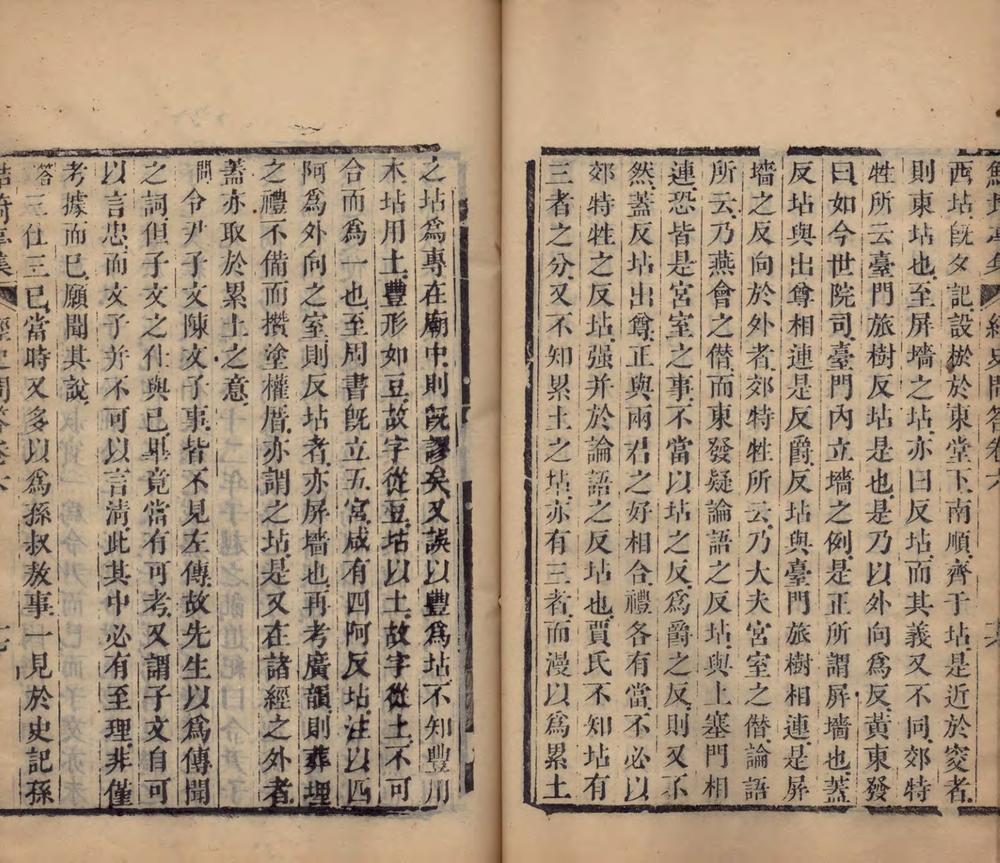 鮚埼亭集 經史問答卷六
西坫既夕記設棜於東堂下南順齊于坫是近於窔者
則東坫也至屏墻之坫亦曰反坫而其義又不同郊特
牲所云臺門旅樹反坫是也是乃以外向爲反黃東發
曰如今世院司臺門內立墻之例是正所謂屏墻也蓋
反坫與出尊相連是反爵反坫與臺門旅樹相連是屏
墻之反向於外者郊特牲所云乃大夫宮室之僣論語
所云乃燕會之僣而東發疑論語之反坫與上塞門相
連恐皆是宮室之事不當以坫之反爲爵之反則又不
然蓋反坫出尊正與兩君之好相合禮各有當不必以
郊特牲之反坫强并於論語之反坫也賈氏不知坫有
三者之分又不知累土之坫亦有三者而漫以爲累土
之坫爲專在廟中則既謬矣又誤以豐爲坫不知豐用
木坫用土豐形如豆故字從豆坫以土故字從土不可
合而爲一也至周書既立五宮咸有四阿反坫注以四
阿爲外向之室則反坫者亦屏墻也再考廣韻則葬埋
之禮不備而攢塗權厝亦謂之坫是又在諸經之外者
蓋亦取於累土之意
問令尹子文陳文子事皆不見左傳故先生以爲傳聞
之詞但子文之仕與已畢竟當有可考又謂子文自可
以言忠而文子并不可以言清此其中必有至理非僅
考據而已願聞其說
答三仕三已當時又多以爲孫叔敖事一見於史記孫
鮚埼亭集 經史問答卷六